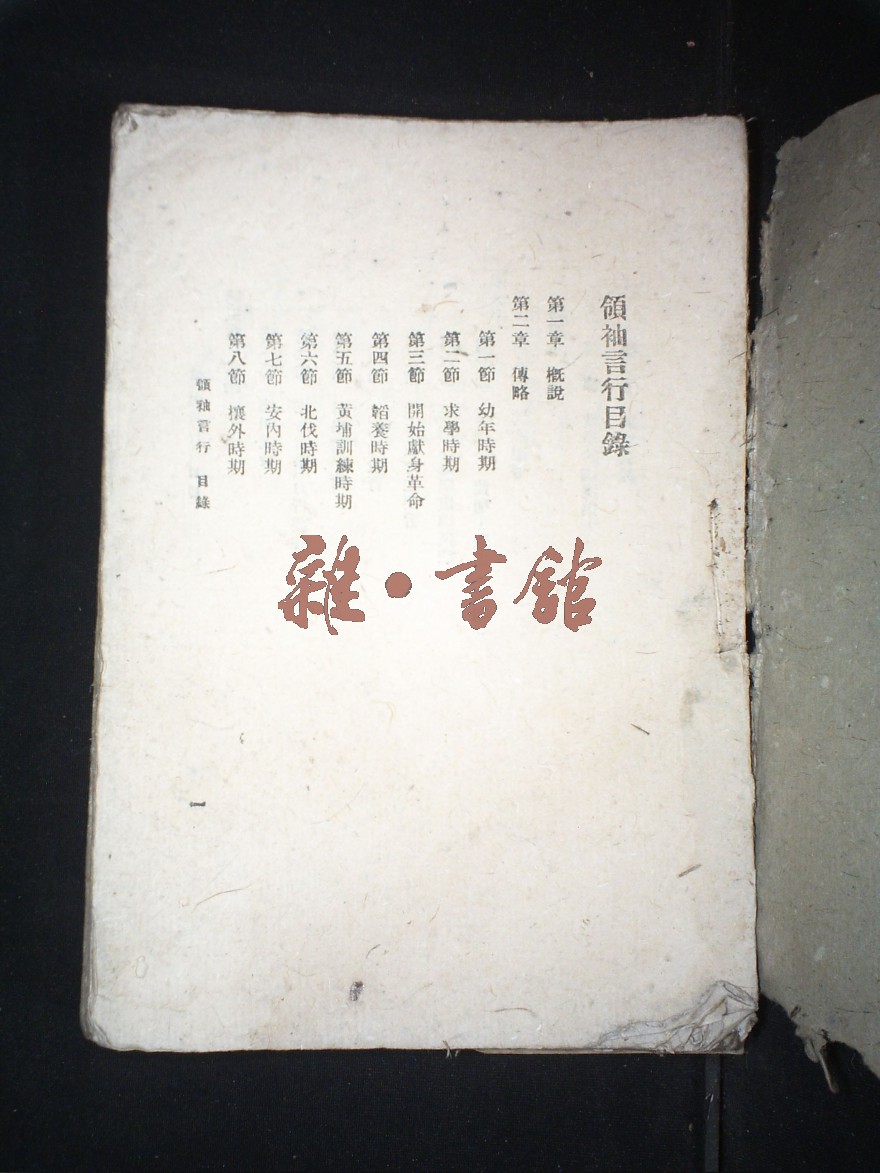 領袖言行目錄
第一章　概說
第二章　傳略
第一節　幼年時期
第二節　求學時期
第三節　開始獻身革命
第四節　韜養時期
第五節　黃埔訓練時期
第六節　北伐時期
第七節　安內時期
第八節　攘外時期
領袖言行　目錄
一
雜・書館